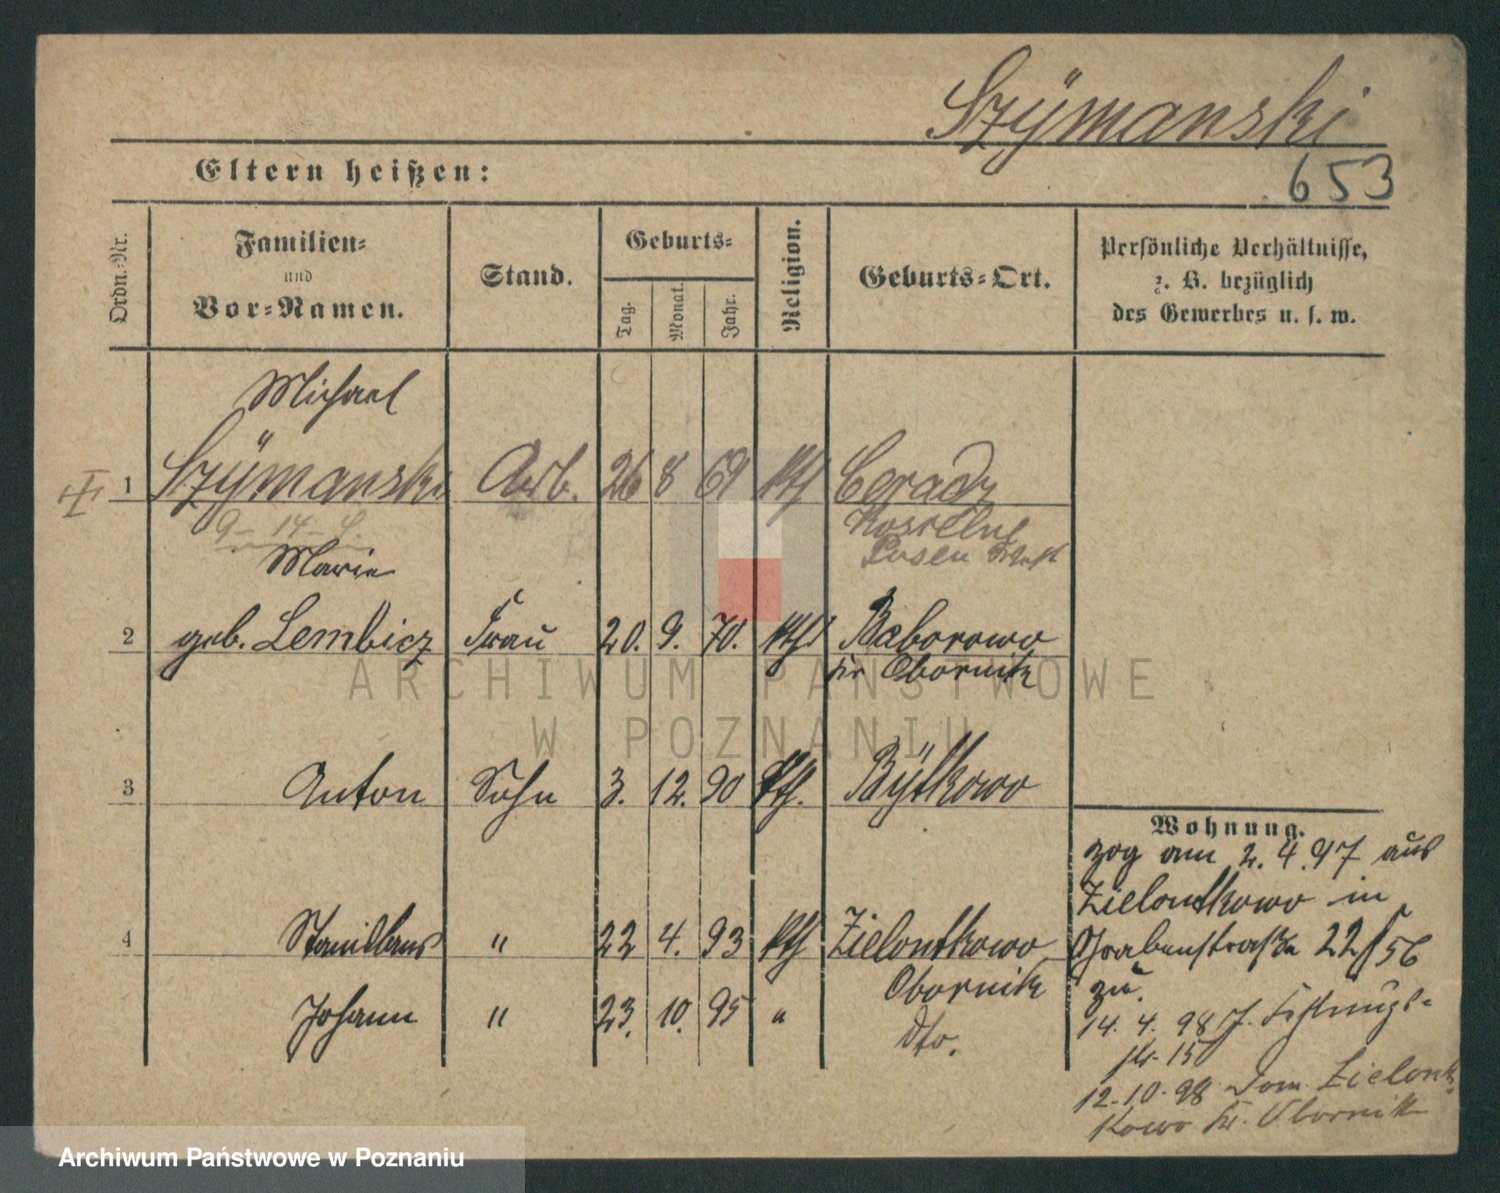 Szÿmanski
653
Eltern heißen:
Ordn.-Nr.
Familien-
und
Vor-Namen.
Stand.
Geburts-
Tag.
Monat.
Jahr.
Religion.
Geburts-Ort.
Persönliche Verhältnisse,
z. B. bezüglich
des Gewerbes u. s. w.
Michael
1 Szÿmanski Arb. 26 8 69 kth Ceradz
9-14-
Posen West
Marie
2 geb. Lembicz Frau 20. 9. 70. kth Baborowo
Kr Obornik
3 Anton Sohn 3. 12. 90 kth. Bÿtkowo
4 Stanislaus " 22 4. 93 kth Zielontkowo
Obornik
Johann " 23. 10. 95 " dto.
Wohnung.
zog am 2. 4. 97 aus
Zielontkowo in
Grabenstraße 22/56
zu.
14. 4. 98 Festungs-
str. 15
12.10.98 Dom. Zielont-
kowo Kr. Obornik
ARCHIWUM PAŃSTWOWE
W POZNANIU
Archiwum Państwowe w Poznaniu